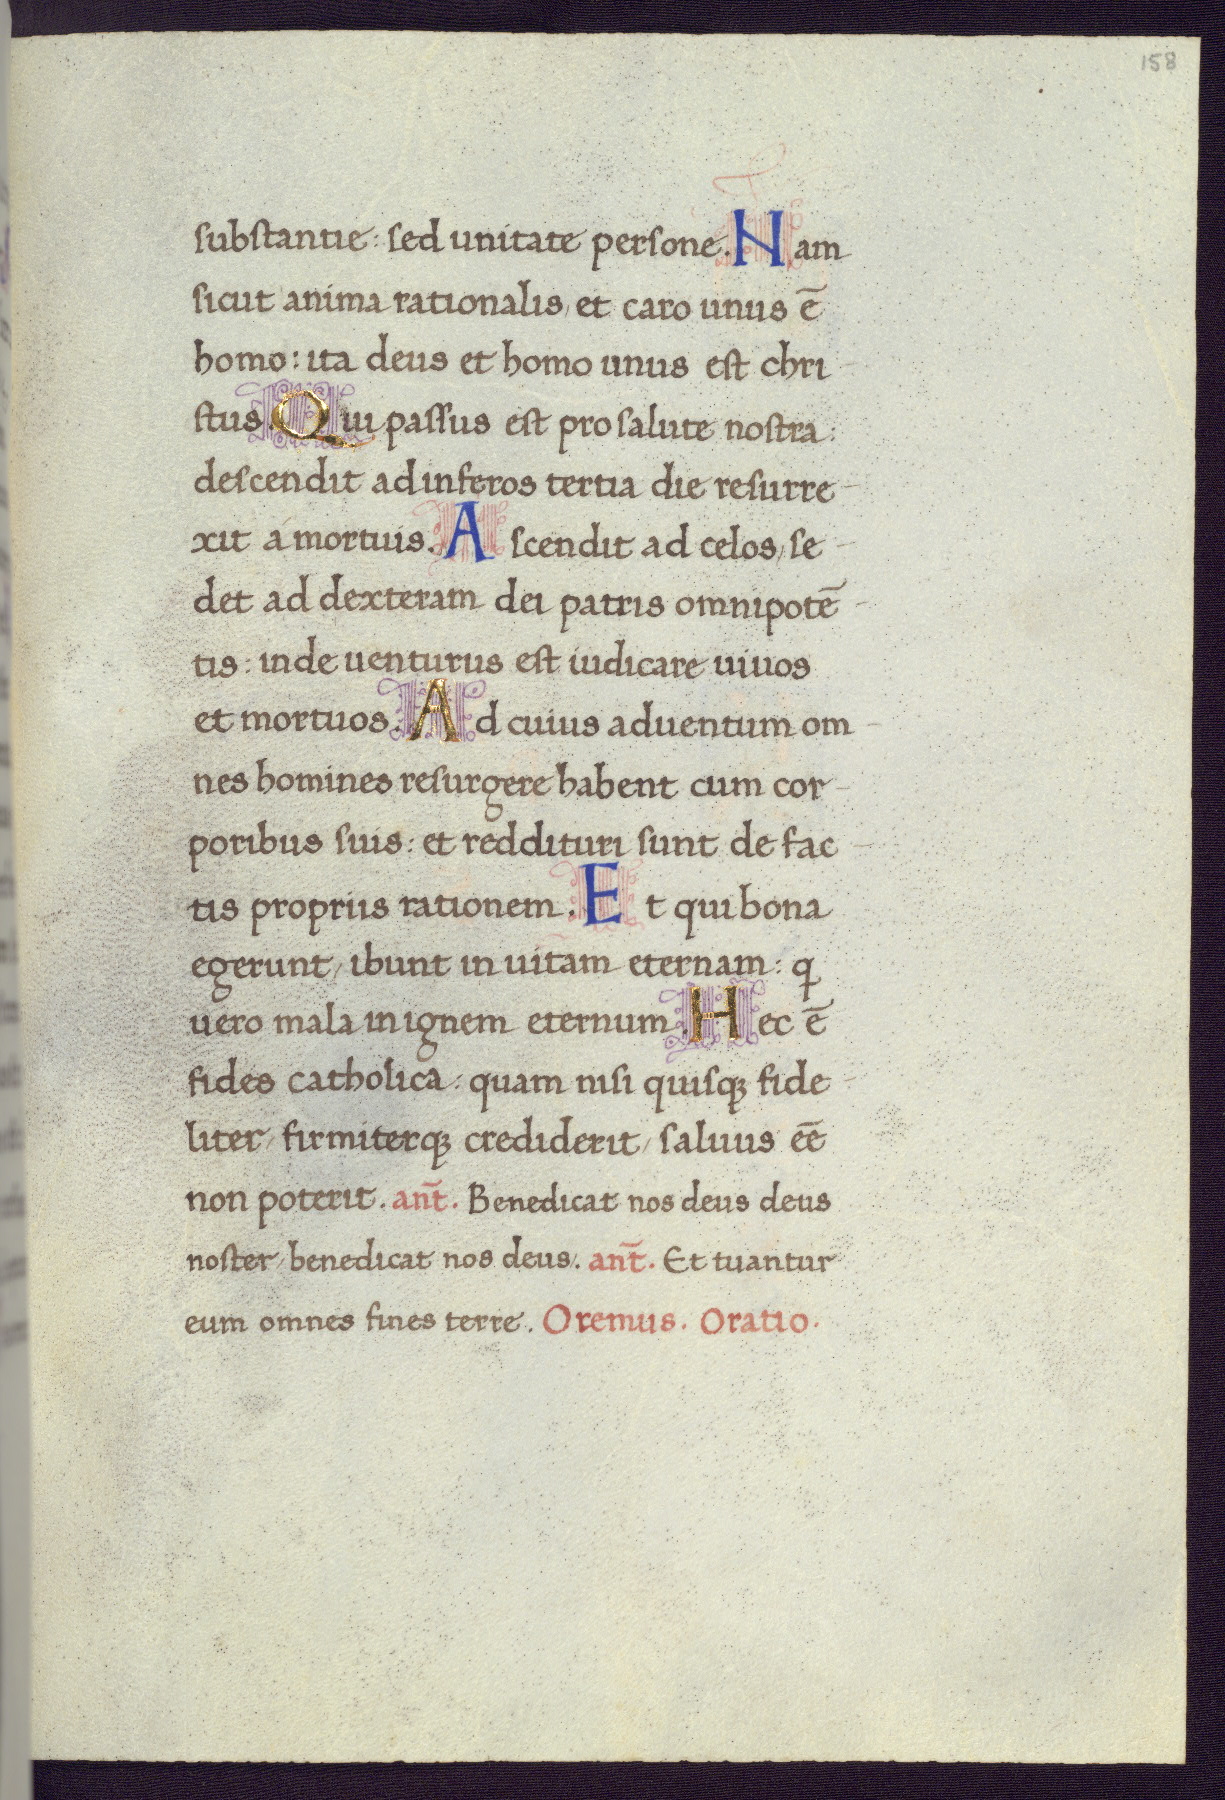 158
substantie: sed unitate persone. Nam
sicut anima rationalis, et caro unus ē
homo: ita deus et homo unus est chri
stus Qui passus est pro salute nostra:
descendit ad inferos tertia die resurre-
xit a mortuis. Ascendit ad celos, se-
det ad dexteram dei patris omnipotē-
tis: inde uenturus est iudicare uiuos
et mortuos. Ad cuius aduentum om-
nes homines resurgere habent cum cor-
poribus suis: et reddituri sunt de fac-
tis propriis rationem. Et qui bona
egerunt, ibunt in uitam eternam: q
uero mala in ignem eternum. Hec ē
fides catholica: quam nisi quisqꝫ fide-
liter, firmiterqꝫ crediderit, saluus eē
non poterit. an̄t. Benedicat nos deus deus
noster, benedicat nos deus. an̄t. Et tuantur
eum omnes fines terre. Oremus. Oratio.